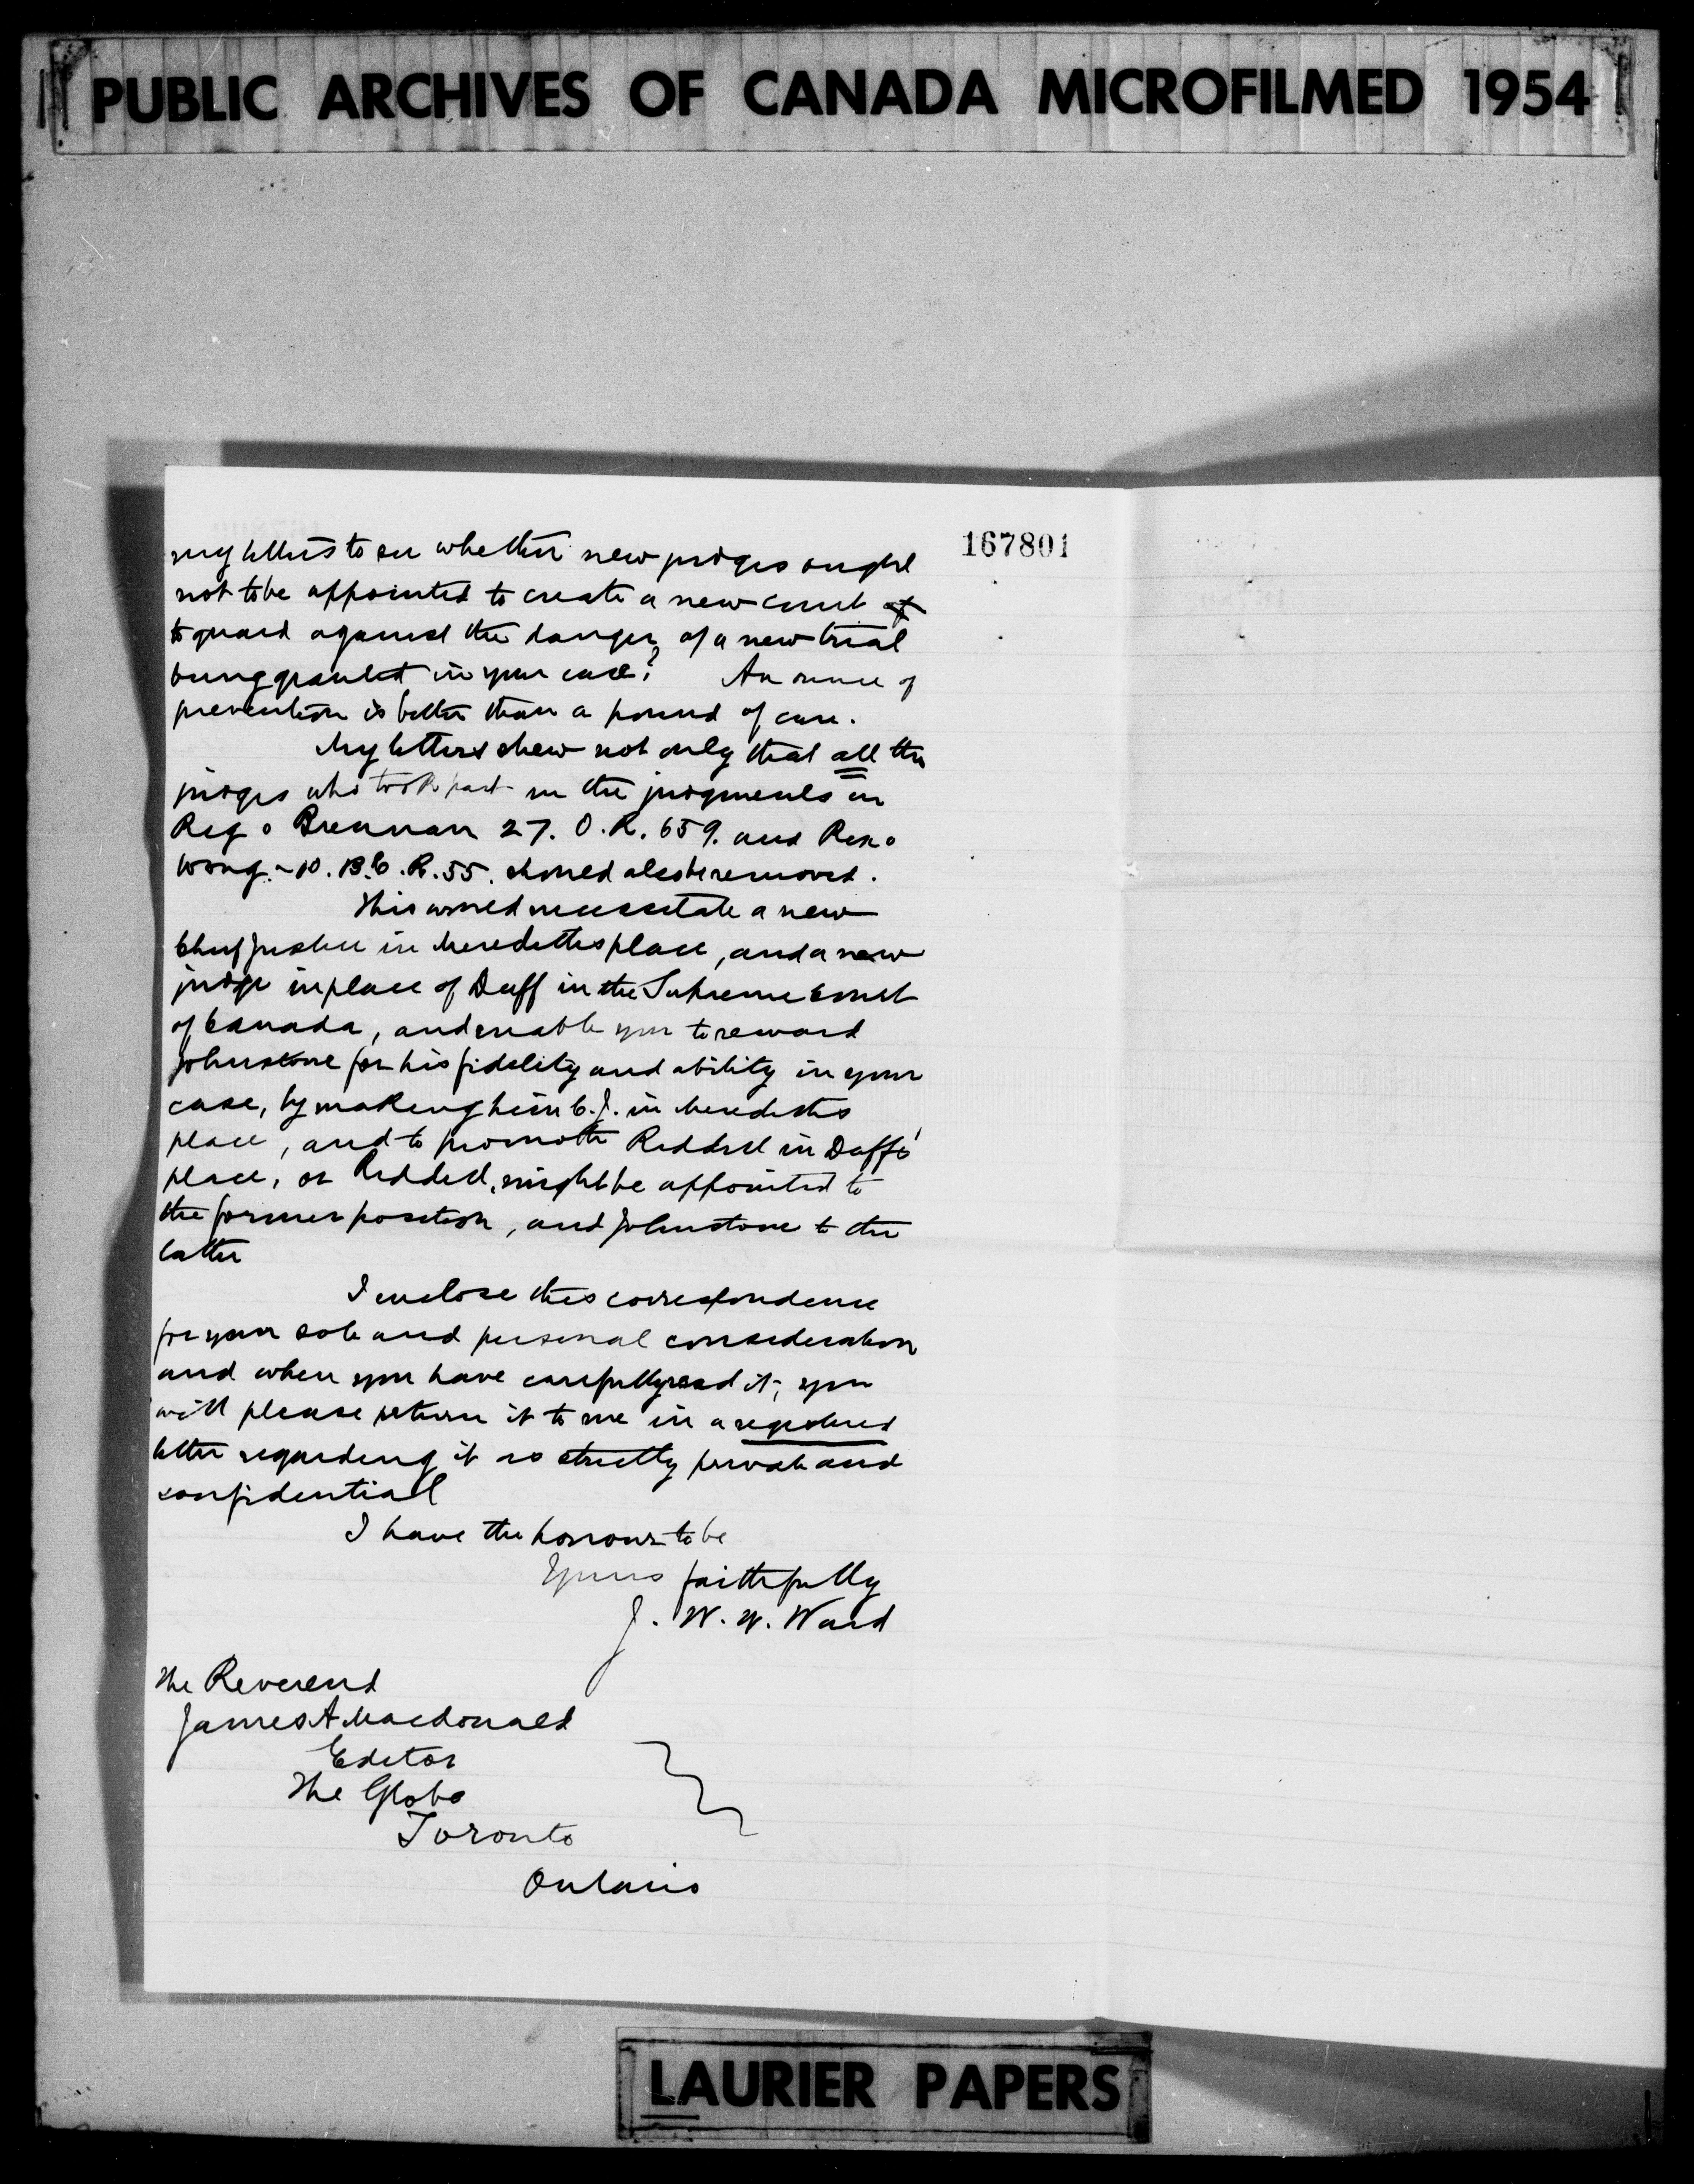 PUBLIC ARCHIVES OF CANADA MICROFILMED 1954
167801
my letters to see whether new judges ought
not to be appointed to create a new court
to guard against the danger of a new trial
being granted in your case? An ounce of
prevention is better than a pound of cure.
My letters shew not only that all the
judges who took part in the judgments in
Reg v Brennan 27. O.R. 659. and Rex v
Wong - 10. B.C.R. 55. should also be removed.
This would necessitate a new
Chief Justice in Meredith's place, and a new
judge in place of Duff in the Supreme Court
of Canada, and enable you to reward
Johnstone for his fidelity and ability in your
case, by making him C.J. in Meredith's
place, and to promote Riddell in Duff's
place, or Riddell, might be appointed to
the former position, and Johnstone to the
latter
I enclose this correspondence
for your sole and personal consideration
and when you have carefully read it, you
will please return it to me in a registered
letter regarding it as strictly private and
confidential
I have the honour to be
Yours faithfully
J. W. W. Ward
The Reverend
James A Macdonald
Editor
The Globe
Toronto
Ontario
LAURIER PAPERS